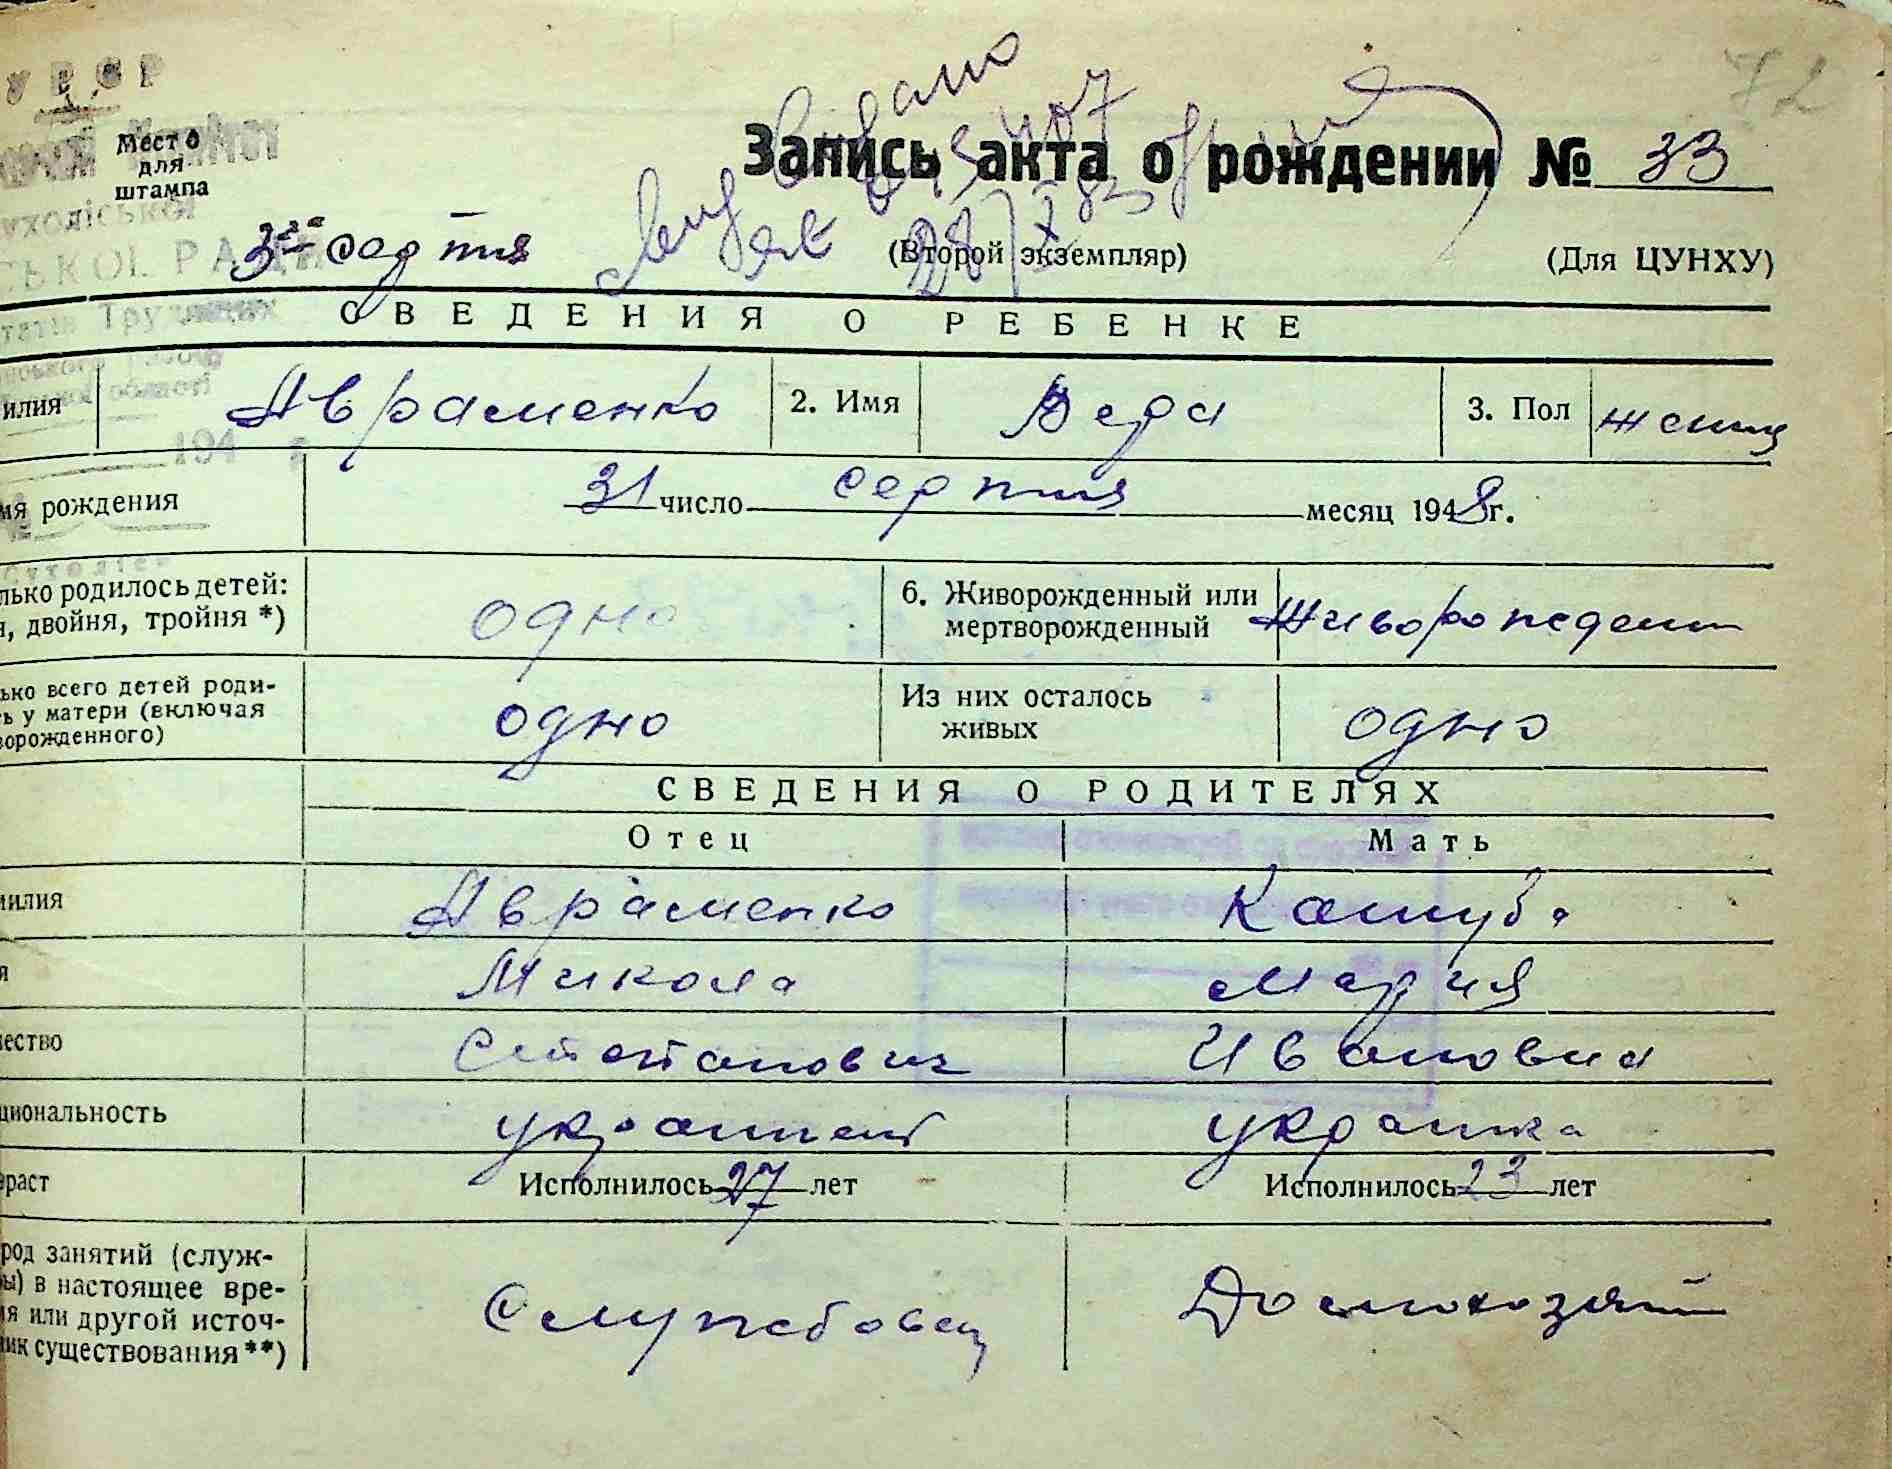 УРСР
72
Место
для
штампа
Запись акта о рождении № 33
видано
3го серпня
(Второй экземпляр)
28/X 83
(Для ЦУНХУ)
СЬКОЇ РАДИ
СВЕДЕНИЯ О РЕБЕНКЕ
илия Авраменко 2. Имя Вера 3. Пол женщ
194
мя рождения 31 число серпня месяц 1948г.
лько родилось детей: одно 6. Живорожденный или Живорожден
я, двойня, тройня *) мертворожденный
ько всего детей роди- одно Из них осталось одно
ь у матери (включая живых
ворожденного)
СВЕДЕНИЯ О РОДИТЕЛЯХ
Отец Мать
милия Авраменко Кашуба
я Микола Мария
чество Степанович Ивановна
циональность украинец украинка
враст Исполнилось 27 лет Исполнилось 23 лет
род занятий (служ-
бы) в настоящее вре-
мя или другой источ- Службовец Домохозяй
ник существования **)